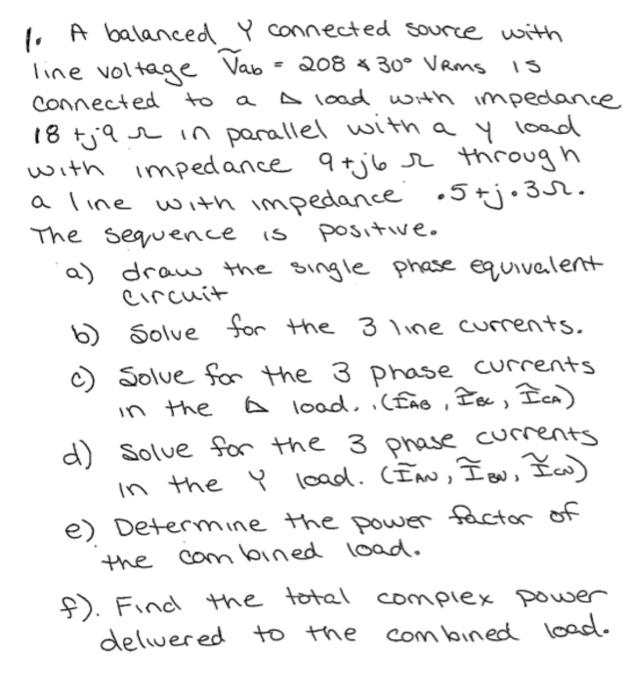 1. A balanced Y connected source with
line voltage Ṽab = 208 ∡ 30° VRMS is
connected to a Δ load with impedance
18 + j9 Ω in parallel with a y load
with impedance 9 + j6 Ω through
a line with impedance .5 + j.3 Ω.
The sequence is positive.
a) draw the single phase equivalent
circuit
b) Solve for the 3 line currents.
c) Solve for the 3 phase currents
in the Δ load. (ĨAB, ĨBC, ĨCA)
d) Solve for the 3 phase currents
in the Y load. (ĨAN, ĨBN, ĨCN)
e) Determine the power factor of
the combined load.
f). Find the total complex power
delivered to the combined load.